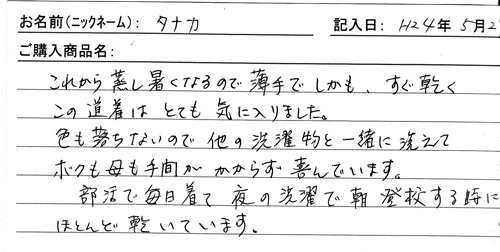 お名前(ニックネーム): タナカ 記入日: H24年5月2
ご購入商品名:
これから蒸し暑くなるので薄手でしかも、すぐ乾く
この道着はとても気に入りました。
色も落ちないので他の洗濯物と一緒に洗えて
ボクも母も手間がかからず喜んでいます。
部活で毎日着て夜の洗濯で朝登校する時に
ほとんど乾いています。